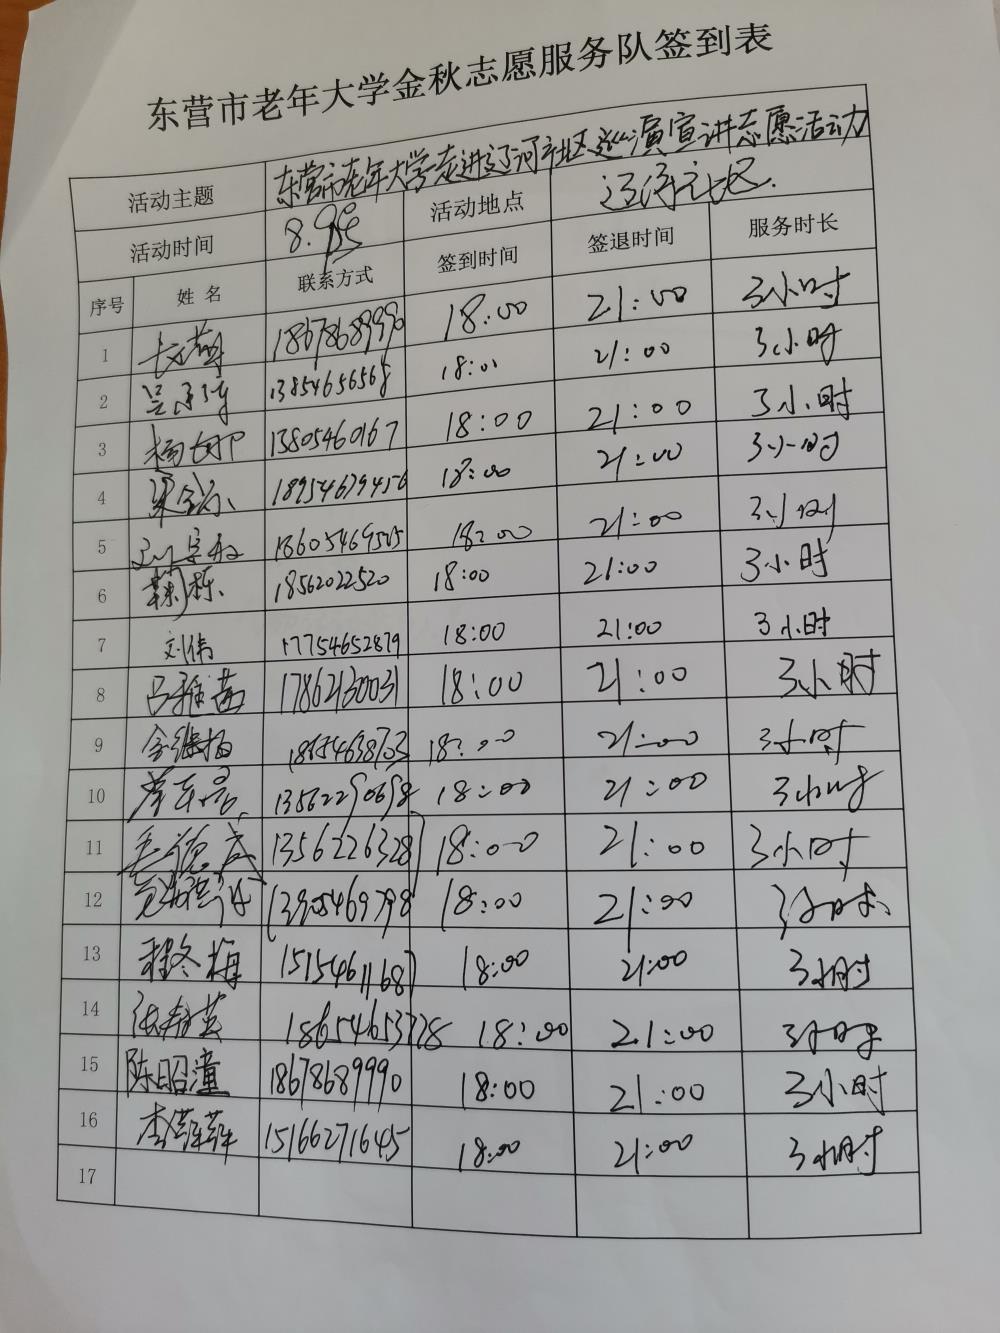 东营市老年大学金秋志愿服务队签到表
活动主题 东营市老年大学走进辽河社区巡演宣讲志愿活动
活动时间 8.9 活动地点 辽河社区.
序号 姓名 联系方式 签到时间 签退时间 服务时长
1 18678689990 18:00 21:00 3小时
2 13854656568 18:00 21:00 3小时
3 13805460167 18:00 21:00 3小时
4 18954679456 18:00 21:00 3小时
5 18605469505 18:00 21:00 3小时
6 18562022520 18:00 21:00 3小时
7 刘伟 17754652879 18:00 21:00 3小时
8 吕雅茜 17862130031 18:00 21:00 3小时
9 18654638703 18:00 21:00 3小时
10 13562290698 18:00 21:00 3小时
11 13562226328 18:00 21:00 3小时
12 13905469798 18:00 21:00 3小时
13 程冬梅 15154611687 18:00 21:00 3小时
14 18654653728 18:00 21:00 3小时
15 陈昭潼 18678689990 18:00 21:00 3小时
16 李萍萍 15166271645 18:00 21:00 3小时
17